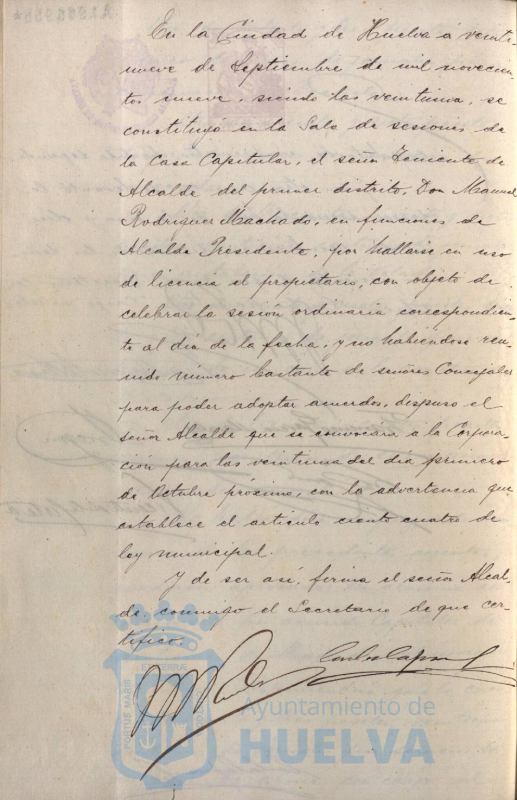 En la Ciudad de Huelva á veinti-
nueve de Septiembre de mil novecien-
tos nueve, siendo las veintiuna, se
constituyó en la Sala de sesiones de
la Casa Capitular, el señor Teniente de
Alcalde del primer distrito, Don Manuel
Rodriguez Machado, en funciones de
Alcalde Presidente, por hallarse en uso
de licencia el propietario, con objeto de
celebrar la sesión ordinaria correspondien-
te al día de la fecha, y no habiéndose reu-
nido número bastante de señores Concejales
para poder adoptar acuerdos, dispuso el
señor Alcalde que se convocara a la Corpora-
ción para las veintiuna del dia primero
de Octubre próximo, con la advertencia que
establece el articulo ciento cuatro de
ley municipal.
Y de ser así, firma el señor Alcal-
de conmigo el Secretario de que cer-
tifico.
PORTUS MARIS ET TERRÆ
Ayuntamiento de
HUELVA